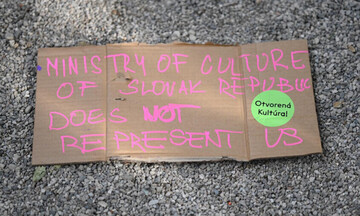 MINISTRY OF CULTURE
OF SLOVAK REPUBLIC
DOES NOT
REPRESENT US
Otvorená
Kultúra!